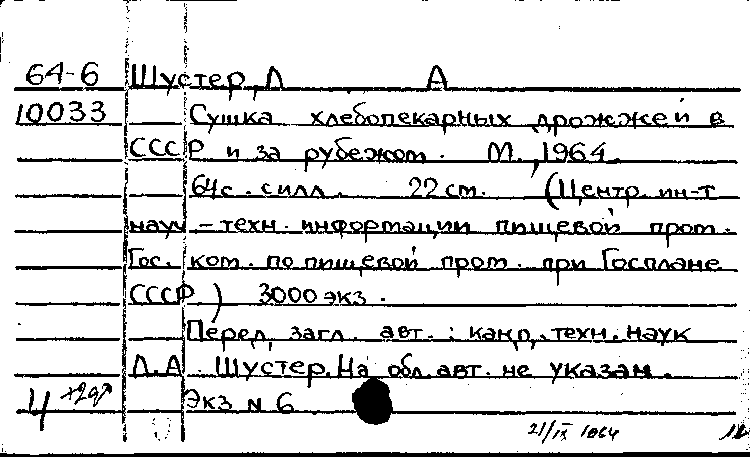 64-6 Шустер, Л А
10033 Сушка хлебопекарных дрожжей в
СССР и за рубежом. М., 1964.
64с. с илл. 22 см. (Центр. ин-т
науч-техн. информации пищевой пром.
Гос. ком. по пищевой пром. при Госплане
СССР.) 3000 экз.
Перед загл. авт.: канд. техн. наук
Л.А. Шустер. На обл. авт. не указан.
Экз N 6
21/IX 1964